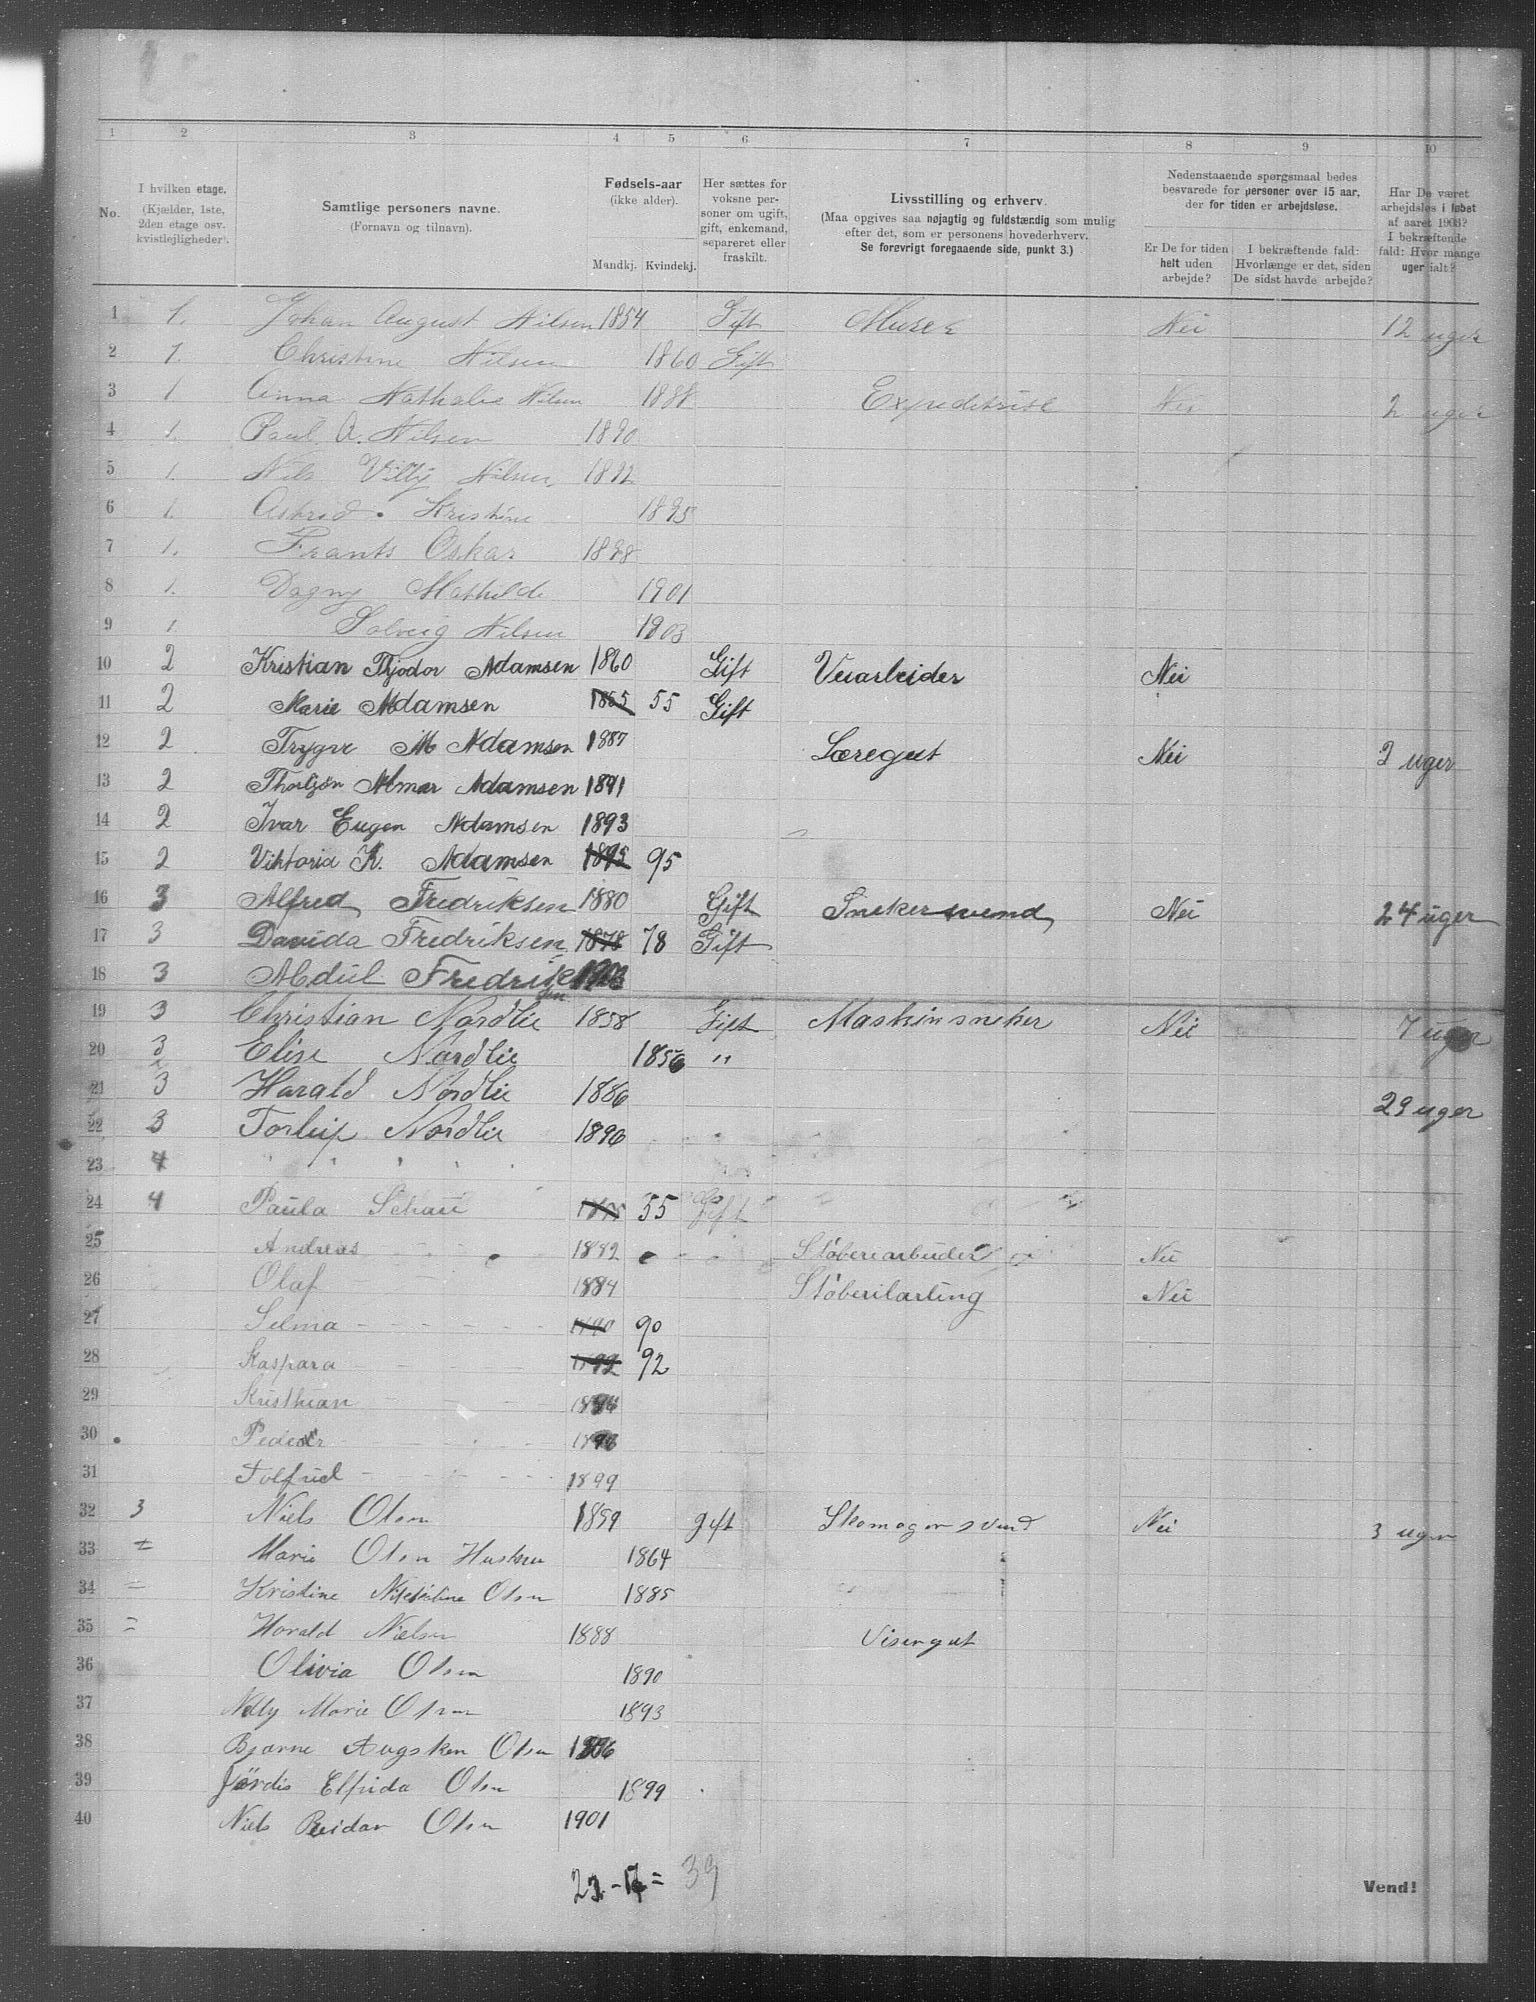 1 2 3 4 5 6 7 8 9 10
No. I hvilken etage. (Kjælder, 1ste, 2den etage osv. kvistlejligheder). Samtlige personers navne. (Fornavn og tilnavn). Fødsels-aar (ikke alder). Mandkj. Kvindekj. Her sættes for voksne personer om ugift, gift, enkemand, separeret eller fraskilt. Livsstilling og erhverv. (Maa opgives saa nøjagtig og fuldstændig som mulig efter det, som er personens hovederhverv. Se forøvrigt foregaaende side, punkt 3.) Nedenstaaende spørgsmaal bedes besvarede for personer over 15 aar, der for tiden er arbejdsløse. Er De for tiden helt uden arbejde? I bekræftende fald: Hvorlænge er det, siden De sidst havde arbejde? Har De været arbejdsløs i løbet af aaret 1903? I bekræftende fald: Hvor mange uger ialt?
1 1. Johan August Nilsen 1854 Gift Murer Nei 12 uger
2 1. Christine Nilsen 1860 Gift
3 1 Anna Nathalie Nilsen 1888 Expeditrise Nei 2 uger
4 1. Paul A. Nilsen 1890
5 1. Nils Villy Nilsen 1892
6 1. Astrid Kristine 1895
7 1. Frants Oskar 1898
8 1. Dagny Mathilde 1901
9 1. Solveig Nilsen 1903
10 2 Kristian Thjodor Adamsen 1860 Gift Veiarbeider Nei
11 2 Marie Adamsen 1855 55 Gift
12 2 Trygve M Adamsen 1887 Læregut Nei 2 uger
13 2 Thorbjørn Almar Adamsen 1891
14 2 Ivar Eugen Adamsen 1893
15 2 Viktoria K. Adamsen 1895 95
16 3 Alfred Fredriksen 1880 Gift Snekersvend Nei 24 uger
17 3 Davida Fredriksen 1878 78 Gift
18 3 Fredriksen 1903
19 3 Christian Nordlie 1858 Gift Maskinsneker Nei 7 uger
20 3 Elise Nordlie 1856 "
21 3 Harald Nordlie 1886 29 uger
22 3 Torleif Nordlie 1896
23 4 " " " "
24 4 Paula 55 Gift
25 Andreas 1882 Støberiarbeider Nei
26 Olaf 1884 Støberilærling Nei
27 Selma 1890 90
28 Kaspara 1892 92
29 Kristhian
30 Peder
31 Tolfried 1899
32 3 Niels Olsen 1859 gift Skomagersvend Nei 3 uger
33 = Marie Olsen Hustru 1864
34 = Kristine Olsen 1885
35 = Harald Nielsen 1888 Visergut
36 Olivia Olsen 1890
37 Nelly Marie Olsen 1893
38 Bjarne Olsen 1896
39 Jørdis Elfrida Olsen 1899
40 Niels Reidar Olsen 1901
= 39
Vend!